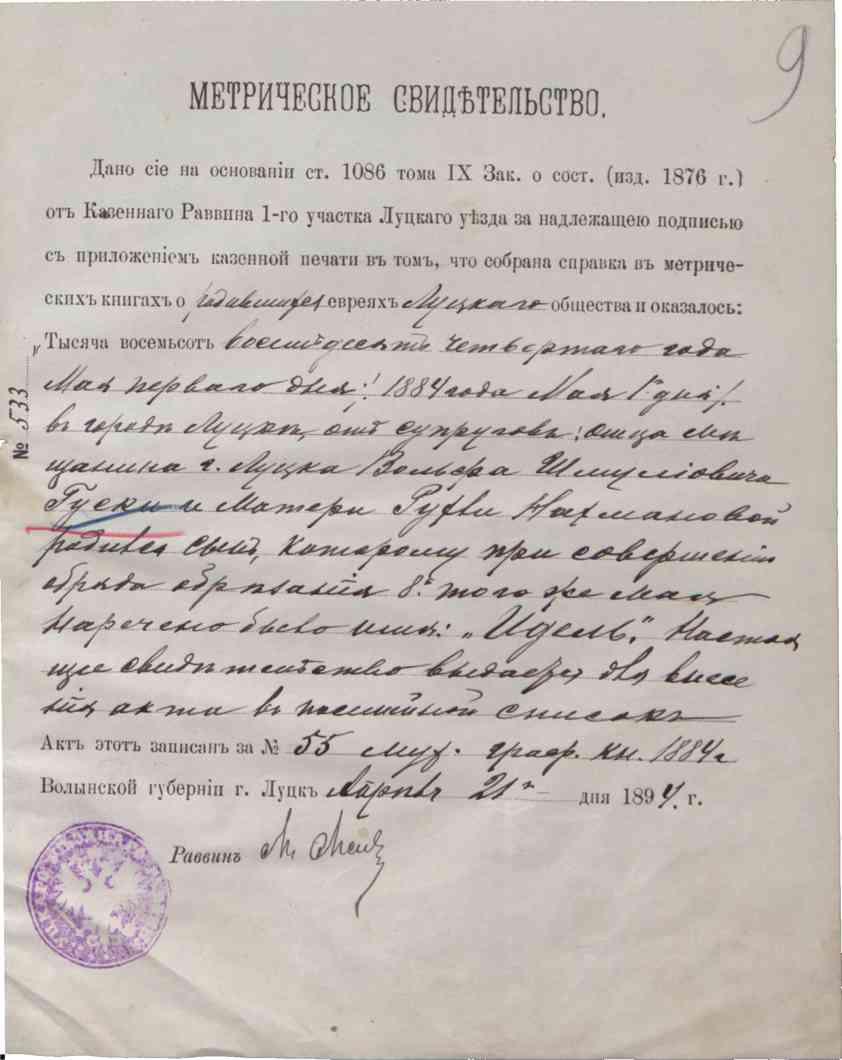 9
МЕТРИЧЕСКОЕ СВИДѢТЕЛЬСТВО.
Дано сіе на основаніи ст. 1086 тома IX Зак. о сост. (изд. 1876 г.)
отъ Казеннаго Раввина 1-го участка Луцкаго уѣзда за надлежащею подписью
съ приложеніемъ казенной печати въ томъ, что собрана справка въ метриче-
скихъ книгахъ о родившихся евреяхъ Луцкаго общества и оказалось:
Тысяча восемьсотъ восемьдесятъ четвертаго года
Мая перваго дня /1884 года Мая 1 дня/
въ городѣ Луцкѣ, отъ супруговъ: отца Мѣ
щанина г. Луцка Вольфа Шмуліовича
Гуски и Матери Рухли Нахмановой
родился сынъ, которому при совершеніи
обряда обрѣзанія 8 того же Мая
наречено было имя: „Идель". Настоя
щее свидѣтельство выдается для внесе
нія акта въ посемейной списокъ
Актъ этотъ записанъ за № 55 муж. граф. кн. 1884 г
Волынской губерніи г. Луцкъ Апрѣля 21 дня 1894 г.
Раввинъ
№ 533